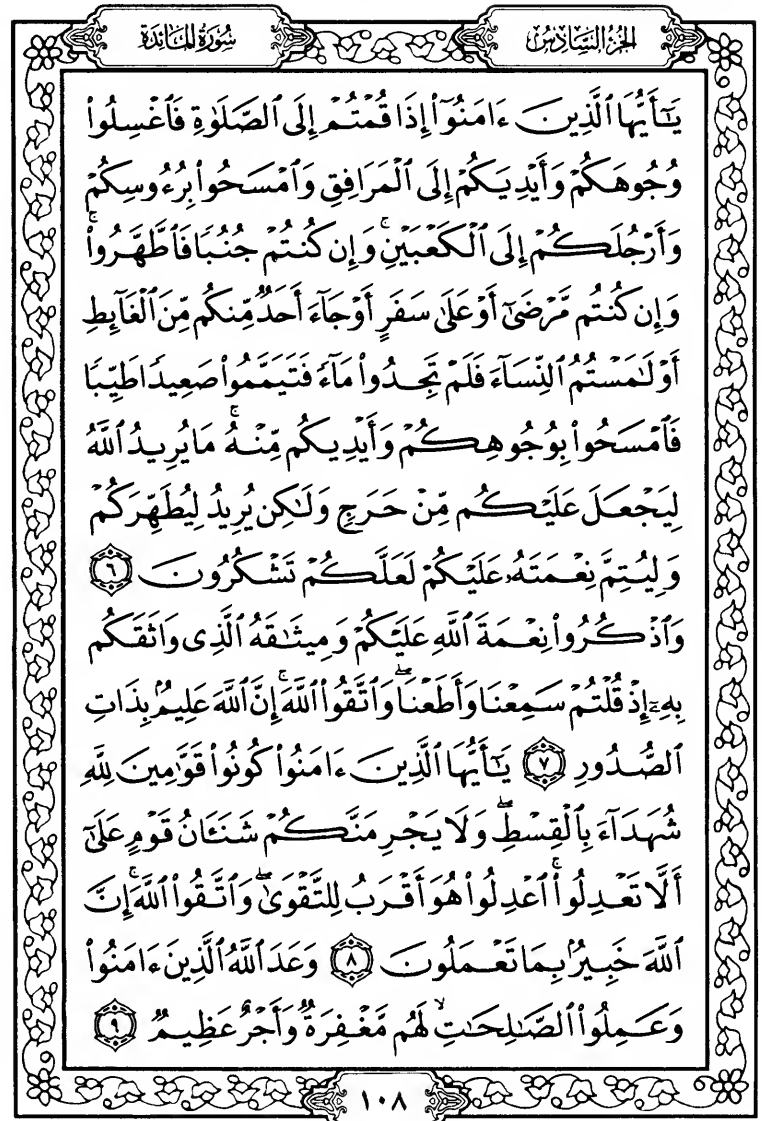 سُورَةُ المَائدَة
الجُزءُ السَّادِسُ
يَـٰٓأَيُّهَا ٱلَّذِينَ ءَامَنُوٓا۟ إِذَا قُمْتُمْ إِلَى ٱلصَّلَوٰةِ فَٱغْسِلُوا۟
وُجُوهَكُمْ وَأَيْدِيَكُمْ إِلَى ٱلْمَرَافِقِ وَٱمْسَحُوا۟ بِرُءُوسِكُمْ
وَأَرْجُلَكُمْ إِلَى ٱلْكَعْبَيْنِ ۚ وَإِن كُنتُمْ جُنُبًا فَٱطَّهَّرُوا۟ ۚ
وَإِن كُنتُم مَّرْضَىٰٓ أَوْ عَلَىٰ سَفَرٍ أَوْ جَآءَ أَحَدٌ مِّنكُم مِّنَ ٱلْغَآئِطِ
أَوْ لَـٰمَسْتُمُ ٱلنِّسَآءَ فَلَمْ تَجِدُوا۟ مَآءً فَتَيَمَّمُوا۟ صَعِيدًا طَيِّبًا
فَٱمْسَحُوا۟ بِوُجُوهِكُمْ وَأَيْدِيكُم مِّنْهُ ۚ مَا يُرِيدُ ٱللَّهُ
لِيَجْعَلَ عَلَيْكُم مِّنْ حَرَجٍ وَلَـٰكِن يُرِيدُ لِيُطَهِّرَكُمْ
وَلِيُتِمَّ نِعْمَتَهُۥ عَلَيْكُمْ لَعَلَّكُمْ تَشْكُرُونَ ٦
وَٱذْكُرُوا۟ نِعْمَةَ ٱللَّهِ عَلَيْكُمْ وَمِيثَـٰقَهُ ٱلَّذِى وَاثَقَكُم
بِهِۦٓ إِذْ قُلْتُمْ سَمِعْنَا وَأَطَعْنَا ۖ وَٱتَّقُوا۟ ٱللَّهَ ۚ إِنَّ ٱللَّهَ عَلِيمٌۢ بِذَاتِ
ٱلصُّدُورِ ٧ يَـٰٓأَيُّهَا ٱلَّذِينَ ءَامَنُوا۟ كُونُوا۟ قَوَّٰمِينَ لِلَّهِ
شُهَدَآءَ بِٱلْقِسْطِ ۖ وَلَا يَجْرِمَنَّكُمْ شَنَـَٔانُ قَوْمٍ عَلَىٰٓ
أَلَّا تَعْدِلُوا۟ ۚ ٱعْدِلُوا۟ هُوَ أَقْرَبُ لِلتَّقْوَىٰ ۖ وَٱتَّقُوا۟ ٱللَّهَ ۚ إِنَّ
ٱللَّهَ خَبِيرٌۢ بِمَا تَعْمَلُونَ ٨ وَعَدَ ٱللَّهُ ٱلَّذِينَ ءَامَنُوا۟
وَعَمِلُوا۟ ٱلصَّـٰلِحَـٰتِ ۙ لَهُم مَّغْفِرَةٌ وَأَجْرٌ عَظِيمٌ ٩
١٠٨